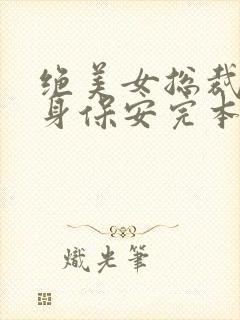 绝美女总裁
身保安完本
熾光筆